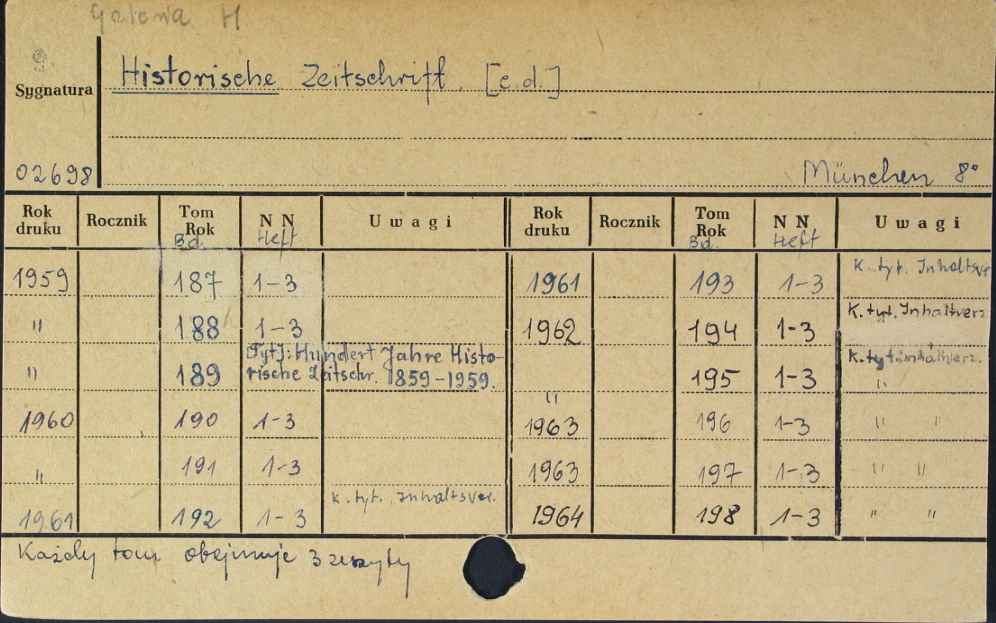 Galeria H
Sygnatura
Historische Zeitschrift. [c.d.]
02698
München 8°
Rok druku Rocznik Tom Rok Bd. N N Heft Uwagi Rok druku Rocznik Tom Rok Bd. N N Heft Uwagi
1959 187 1-3 1961 193 1-3 K. tyt. Inhaltsver
" 188 1-3 1962 194 1-3 K. tyt. Inhaltverz.
" 189 [Tyt]: Hundert Jahre Historische Zeitschr. 1859-1959. " 195 1-3 K. tyt. Inhaltverz. "
1960 190 1-3 1963 196 1-3 " "
" 191 1-3 1963 197 1-3 " "
1961 192 1-3 K. tyt. Inhaltsver. 1964 198 1-3 " "
Każdy tom obejmuje 3 zeszyty